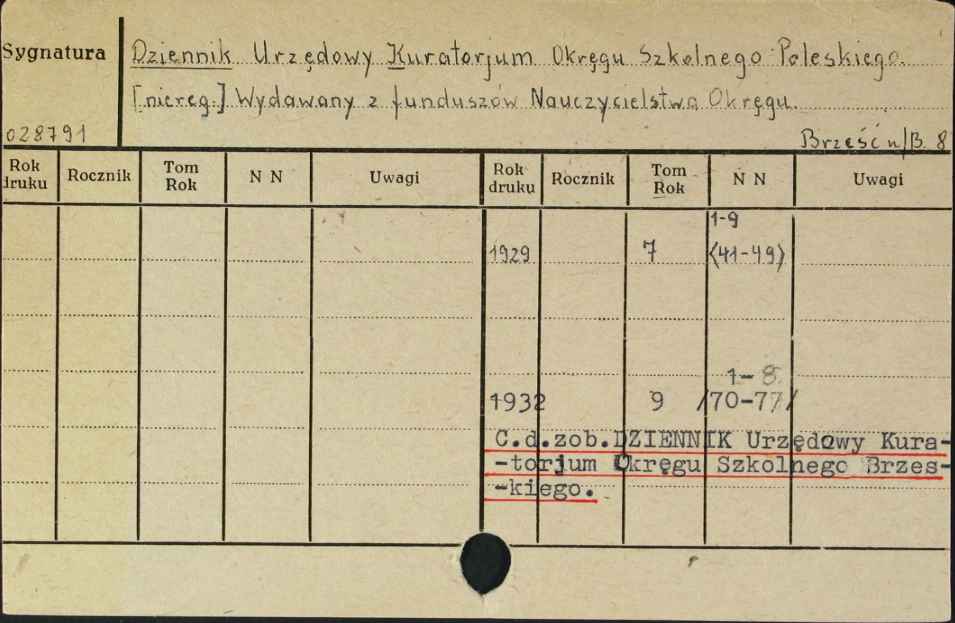 Sygnatura
Dziennik Urzędowy Kuratorjum Okręgu Szkolnego Poleskiego.
[niereg.] Wydawany z funduszów Nauczycielstwa Okręgu.
028791
Brześć n/B. 8
Rok druku Rocznik Tom Rok N N Uwagi Rok druku Rocznik Tom Rok N N Uwagi
1-9
1929 7 (41-49)
1-8
1932 9 /70-77/
C.d.zob.DZIENNIK Urzędowy Kura-
-torjum Okręgu Szkolnego Brzes-
-kiego.